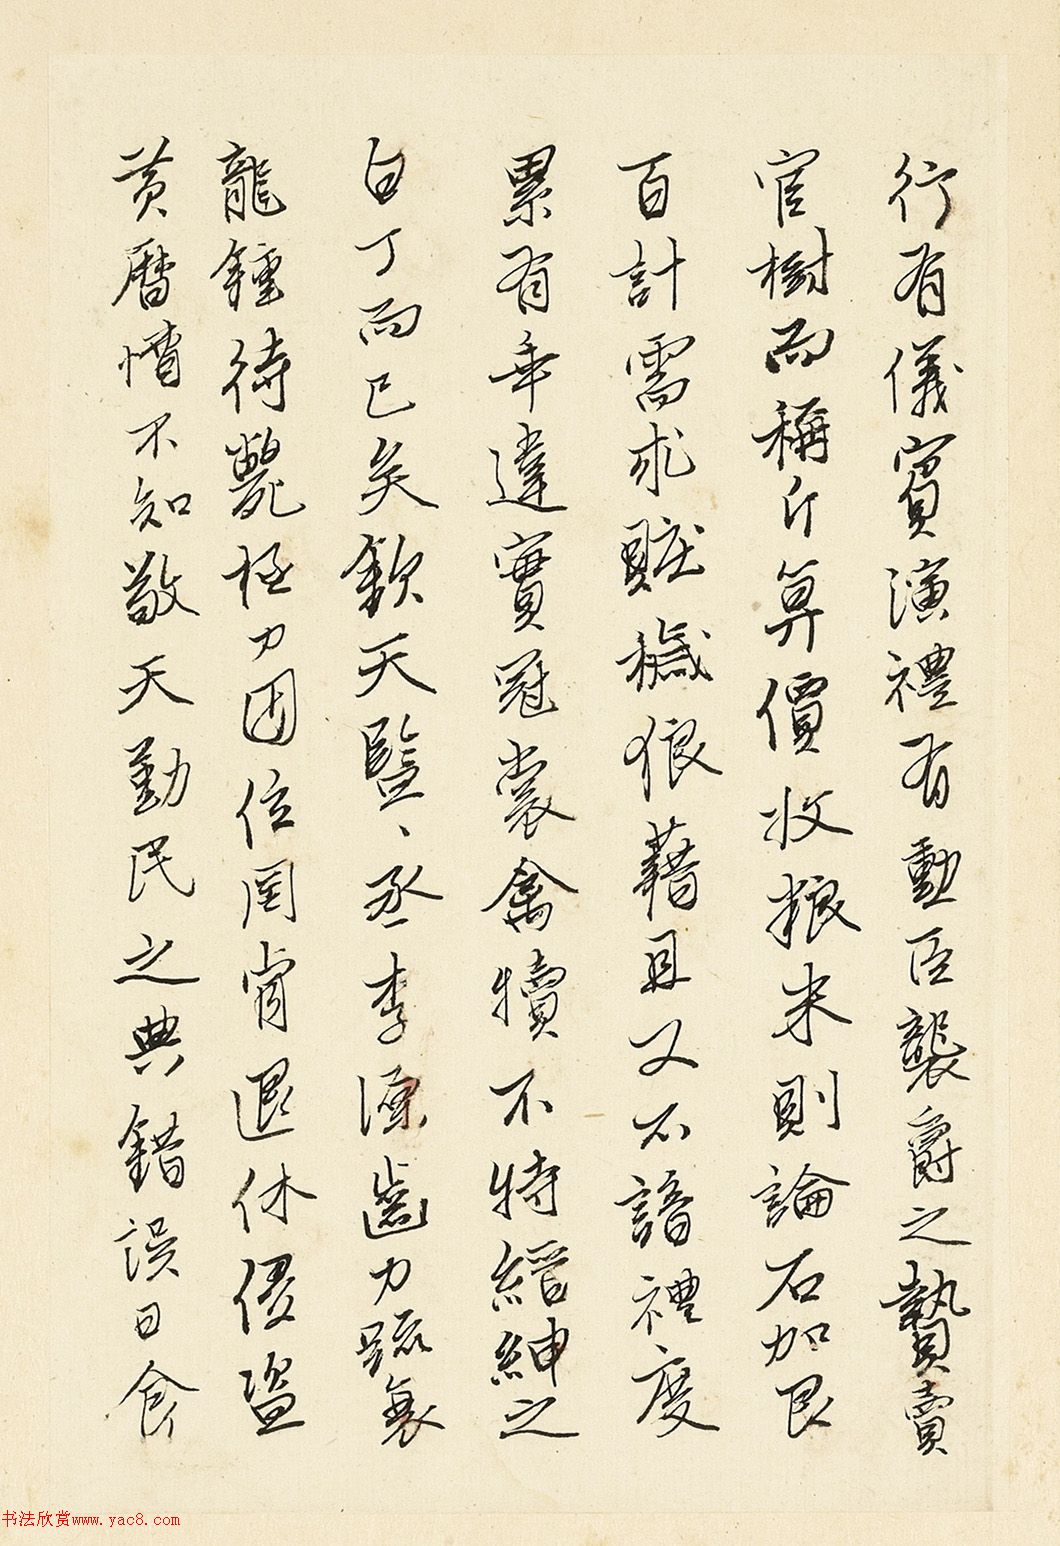 行有儀賓演禮有勳臣襲爵之贄賣
官樹而稱斤算價收粮米則論石加艮
百計需求贓穢狼藉且又不諳禮度
累有乖違實冠裳禽犢不特縉紳之
白丁而已矣欽天監監丞李源齒力疏衰
龍鍾待斃極力固位罔肯退休優盜
黃曆惰不知敬天勤民之典錯誤日食
书法欣赏www.yac8.com